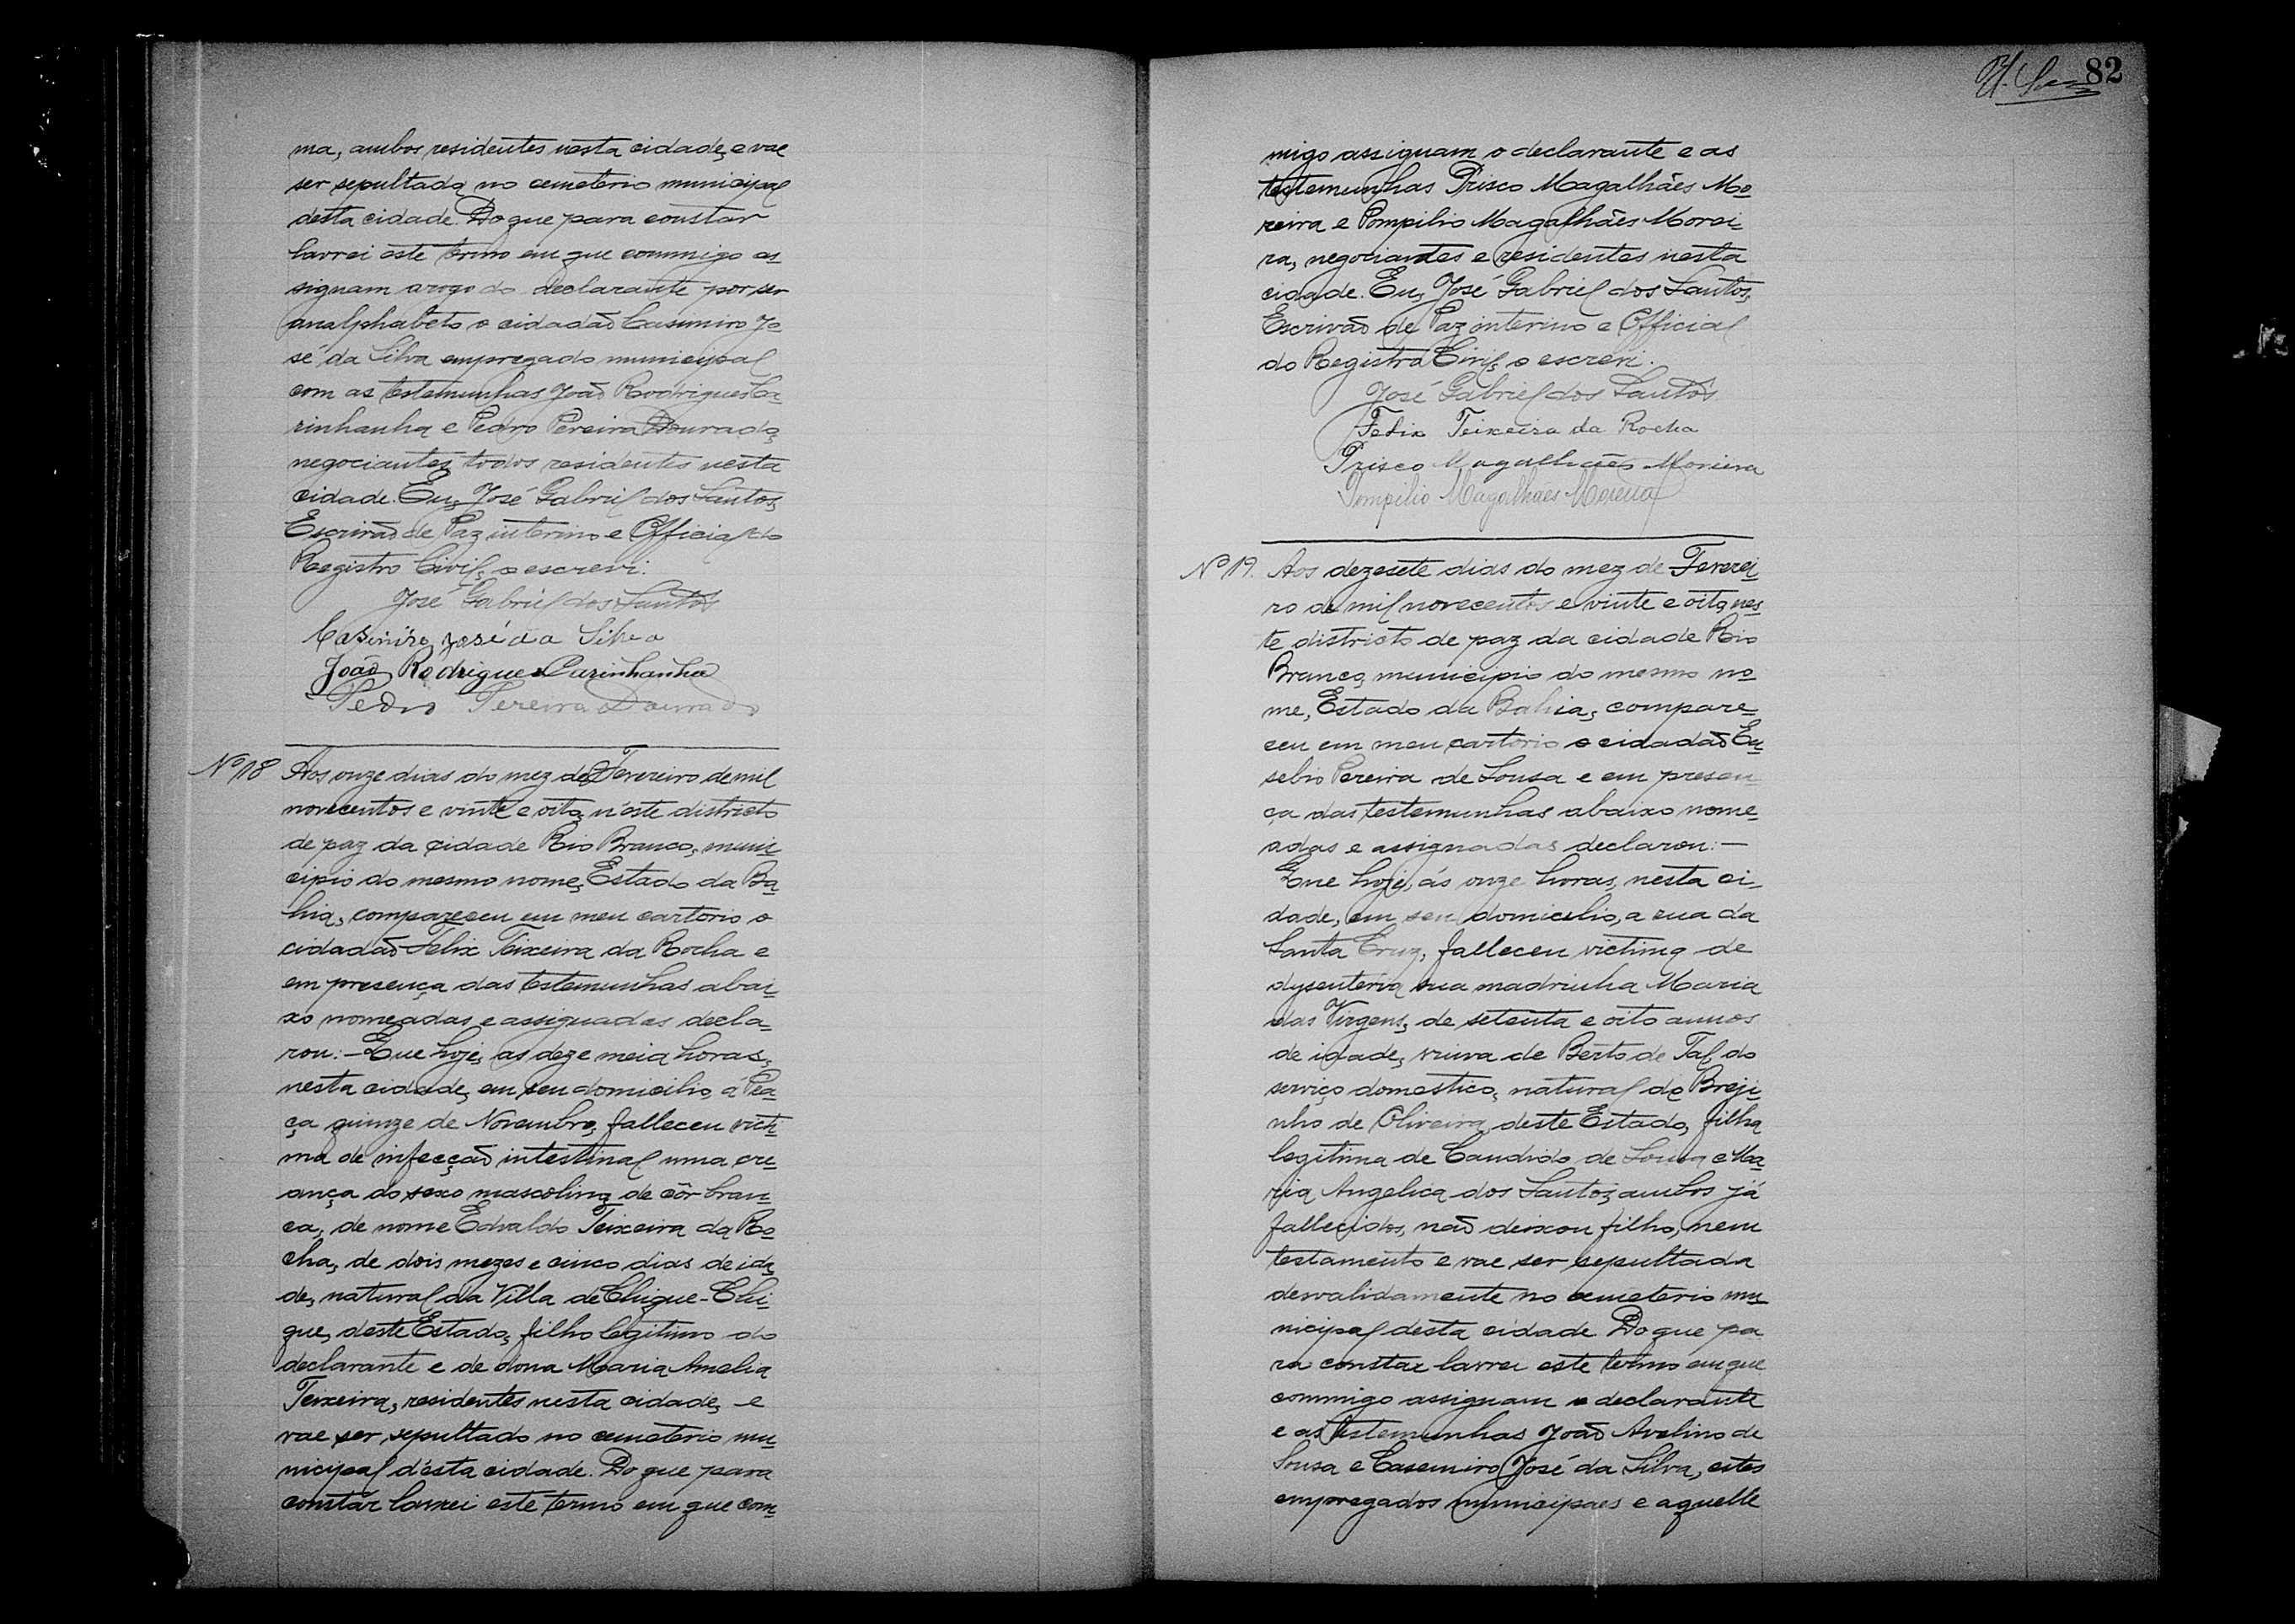 ma, ambos residentes nesta cidade, e vae
ser sepultada no cemeterio municipal
desta cidade. Do que para constar
lavrei este termo em que commigo as-
signam arogo do declarante por ser
analphabeto o cidadão Casimiro Jo-
sé da Silva empregado municipal
com as testemunhas João Rodrigues Ca-
rinhanha e Pedro Pereira Dourado,
negociantes, todos residentes nesta
cidade. Eu, José Gabriel dos Santos,
Escrivão de Paz interino e Official do
Registro Civil, o escrevi.
José Gabriel dos Santos
Casimiro José da Silva
João Rodrigues Carinhanha
Pedro Pereira Dourado
Nº 18 Aos onze dias do mez de Fevereiro de mil
novecentos e vinte e oito, n'este districto
de paz da cidade Rio Branco, muni-
cipio do mesmo nome, Estado da Ba-
hia, compareceu em meu cartorio o
cidadão Felix Teixeira da Rocha e
em presença das testemunhas abai-
xo nomeadas e assignadas decla-
rou: - Que hoje, as deze meia horas,
nesta cidade, em seu domicilio, á Pra-
ça quinze de Novembro, falleceu victi-
ma de infecção intestinal uma cre-
ança do sexo mascolino, de côr bran-
ca, de nome Edvaldo Teixeira da Ro-
cha, de dois mezes e cinco dias de ida-
de, natural da Villa de Chique-Chi-
que, deste Estado, filho legitimo do
declarante e de dona Maria Amelia
Teixeira, residentes nesta cidade, e
vae ser sepultado no cemeterio mu-
nicipal d'esta cidade. Do que para
constar lavrei este termo em que com-
82
migo assignam o declarante e as
testemunhas Prisco Magalhães Mo-
reira e Pompilio Magalhães Morei-
ra, negociantes e residentes nesta
cidade. Eu, José Gabriel dos Santos,
Escrivão de Paz interino e Official
do Registro Civil, o escrevi.
José Gabriel dos Santos
Felix Teixeira da Rocha
Prisco Magalhães Moreira
Pompilio Magalhães Moreira
Nº 19. Aos dezesete dias do mez de Feverei-
ro de mil novecentos e vinte e oito, nes-
te districto de paz da cidade Rio
Branco, municipio do mesmo no-
me, Estado da Bahia, compare-
ceu em meu cartorio o cidadão Eu-
sebio Pereira de Sousa e em presen-
ça das testemunhas abaixo nome-
adas e assignadas declarou: -
Que hoje, ás onze horas, nesta ci-
dade, em seu domicilio, a rua da
Santa Cruz, falleceu victima de
dysenteria sua madrinha Maria
das Virgens, de setenta e oito annos
de idade, viuva de Berto de Tal, do
serviço domestico, natural de Breji-
nho de Oliveira, deste Estado, filha
legitima de Candido de Sousa e Ma-
ria Angelica dos Santos, ambos já
fallecidos, não deixou filho, nem
testamento e vae ser sepultada
desvalidamente no cemeterio mu-
nicipal desta cidade. Do que pa-
ra constar lavrei este termo em que
commigo assignam o declarante
e as testemunhas João Avelino de
Sousa e Casemiro José da Silva, estes
empregados municipaes e aquelle